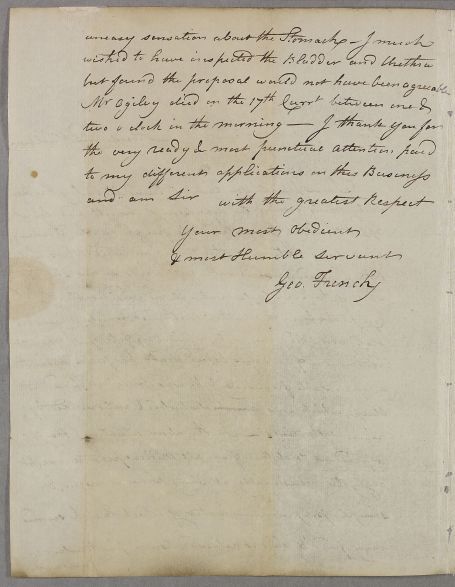 uneasy sensation about the Stomach – I much
wished to have inspected the Bladder and Urethra
but found the proposal would not have been agreeable
Mr Ogilvy died on the 17th Currt between one &
two o clock in the morning — I thank you for
the very ready & most punctual attention paid
to my different applications in this Business
and am Sir with the greatest Respect
Your most obedient
& most Humble Servant
Geo. French